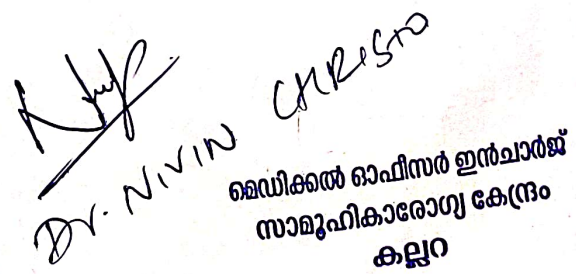 Dr. NIVIN CHRISTO
മെഡിക്കൽ ഓഫീസർ ഇൻചാർജ്
സാമൂഹികാരോഗ്യ കേന്ദ്രം
കല്ലറ